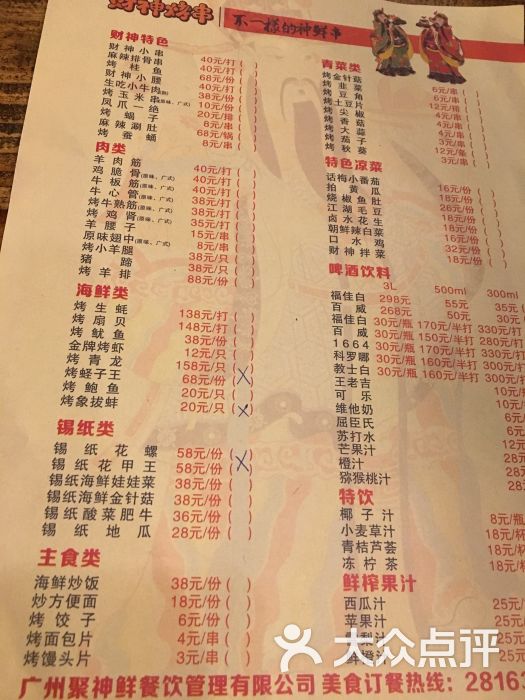 财神烤串
不一样的神鲜串
财神特色
财神小串 40元/打( )
麻辣排骨串 40元/打( )
烤桂鱼 68元/份( )
财神小腰 40元/打( )
生吃小牛肉 38元/份( )
烤玉米串(原味、广式) 10元/份( )
凤爪一绝 20元/排( )
烤蝎子 8元/串( )
麻辣涮肚 68元/锅( )
烤蚕蛹 8元/串( )
肉类
羊肉筋 40元/打( )
鸡脆骨(原味、广式) 40元/打( )
牛板筋 40元/打( )
牛心管(原味、广式) 38元/打( )
烤牛熟筋 38元/打( )
烤鸡肾(原味、广式) 35元/打( )
羊腰子 15元/串( )
原味翅中(原味、广式) 8元/串( )
烤小羊腿 38元/只( )
猪蹄 38元/只( )
烤羊排 88元/份( )
海鲜类
烤生蚝 138元/打( )
烤扇贝 148元/打( )
烤鱿鱼 38元/份( )
金牌烤虾 12元/只( )
烤青龙 158元/只( )
烤蛏子王 68元/份( )
烤鲍鱼 20元/只( )
烤象拔蚌 20元/只( )
锡纸类
锡纸花螺 58元/份( )
锡纸花甲王 58元/份( )
锡纸海鲜娃娃菜 38元/份( )
锡纸海鲜金针菇 38元/份( )
锡纸酸菜肥牛 36元/份( )
锡纸地瓜 28元/份( )
主食类
海鲜炒饭 38元/份( )
炒方便面 18元/份( )
烤饺子 6元/串( )
烤面包片 4元/串( )
烤馒头片 3元/串( )
青菜类
烤金针菇 6元/串( )
烤韭菜
烤豆角
烤土豆片
烤尖椒
烤香菇
烤大蒜
烤茄子
烤秋葵
特色凉菜
话梅小番茄 16元/份( )
拍黄瓜
烧椒皮蛋
江湖毛豆
卤水花生
朝鲜辣白菜
口水鸡 32元/份( )
财神拌菜 18元/份( )
啤酒饮料
3L 500ml 300ml
福佳白 298元 55元
百威 268元 50元
福佳白 30元/瓶 170元/半打 330元/打
百威 30元/瓶 150元/半打
1664 30元/瓶 160元/半打
科罗娜 30元/瓶 150元/半打
教士白 30元/瓶 160元/半打
王老吉
可乐
维他奶
屈臣氏
苏打水
芒果汁
橙汁
猕猴桃汁
特饮
椰子汁 8元/瓶
小麦草汁 18元/杯
青桔芦荟 18元/杯
冻柠茶 18元/杯
鲜榨果汁
西瓜汁 25元/
苹果汁 25元/
雪梨汁 25元/
鲜橙汁
大众点评
广州聚神鲜餐饮管理有限公司 美食订餐热线：2816